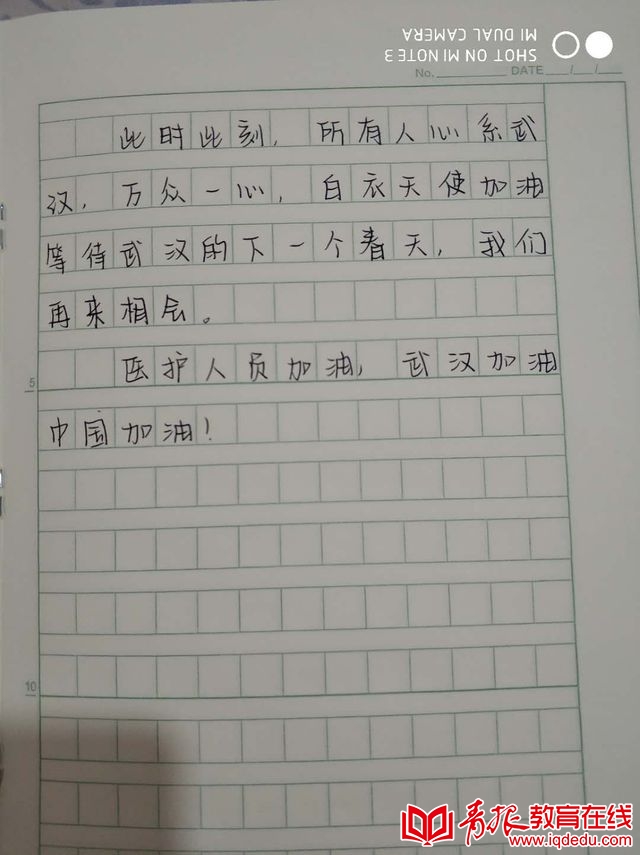 SHOT ON MI NOTE 3
MI DUAL CAMERA
No. DATE / /
此时此刻，所有人心系武
汉，万众一心，白衣天使加油
等待武汉的下一个春天，我们
再来相会。
5
医护人员加油，武汉加油
中国加油！
10
青报教育在线
www.iqdedu.com